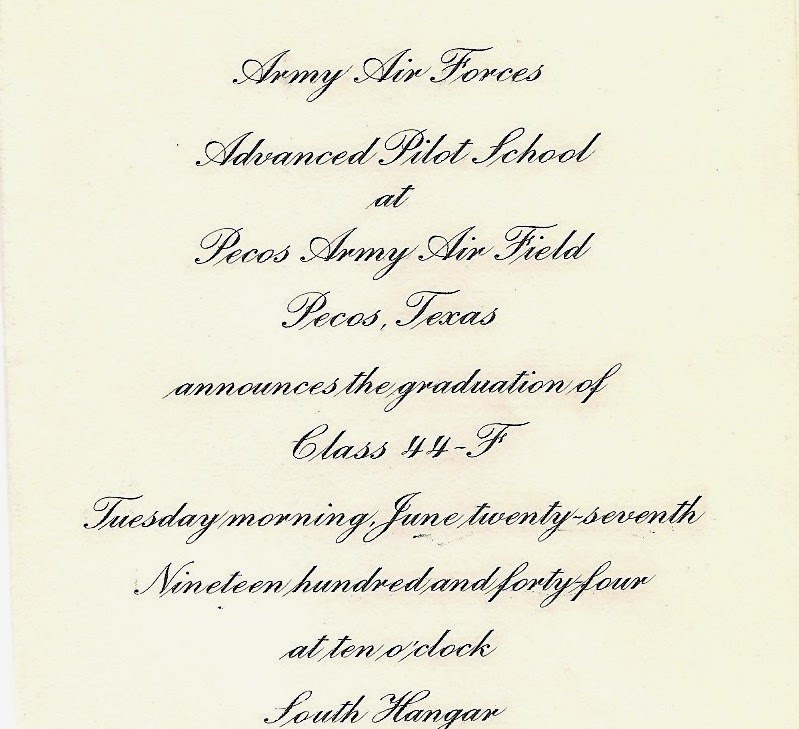 Army Air Forces
Advanced Pilot School
at
Pecos Army Air Field
Pecos, Texas
announces the graduation of
Class 44-F
Tuesday morning, June twenty-seventh
Nineteen hundred and forty-four
at ten o'clock
South Hangar